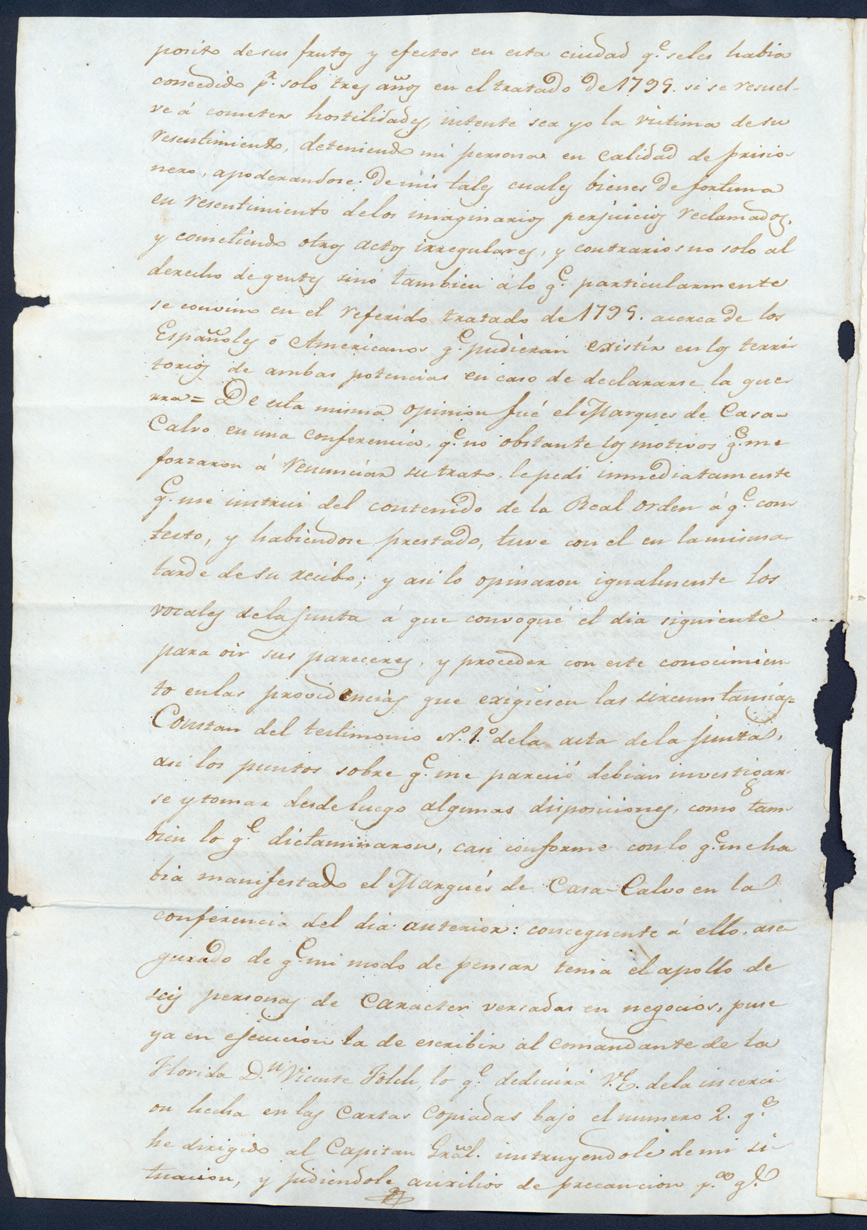 posito de sus frutos y efectos en esta ciudad q.e seles habia
concedido p.r solo tres años en el tratado de 1795. si se resuel-
ve á cometer hostilidades, intente ser yo la victima de su
resentimiento, deteniendo mi persona en calidad de prisio-
nero, apoderandose de mis tales cuales bienes de fortuna
en resentimiento delos imaginarios perjuicios reclamados,
y cometiendo otros actos irregulares, y contrarios no solo al
derecho de gentes sinó tambien á lo q.e particularmente
se convino en el referido tratado de 1795. acerca de los
Españoles ó Americanos q.e pudieran existir en los terri-
torios de ambas potencias en caso de declararse la gue-
rra = De esta misma opinion fué el Marques de Casa-
Calvo en una conferencia, q.e no obstante los motivos q.e me
forzaron á renunciar su trato, le pedi inmediatamente
q.e me instrui del contenido de la Real orden á q.e con-
testo, y habiendose prestado, tuve con el en la misma
tarde de su recibo; y asi lo opinaron igualmente los
vocales dela Junta á que convoqué el dia siguiente
para oir sus pareceres, y proceder con este conocimien-
to enlas providencias que exigiesen las circunstancias =
Constan del testimonio N.o 1.o dela acta de la Junta,
asi los puntos sobre q.e me pareció debian investigar-
se y tomar desde luego algunas disposiciones, como tam-
bien lo q.e dictaminaron, casi conforme con lo q.e me ha
bia manifestado el Marqués de Casa-Calvo en la
conferencia del dia anterior: conseguente á ello, ase
gurado de q.e mi modo de pensar tenia el apollo de
seis personas de caracter versadas en negocios, puse
ya en ejecucion la de escribir al comandante de la
Florida D.n Vicente Folch, lo q.e deducirá V.E. dela incerci
on hecha en las cartas copiadas bajo el numero 2. q.e
he dirigido al Capitan Gral. instruyendole de mi si-
tuacion, y pidiendole auxilios de precaucion p.a q.e